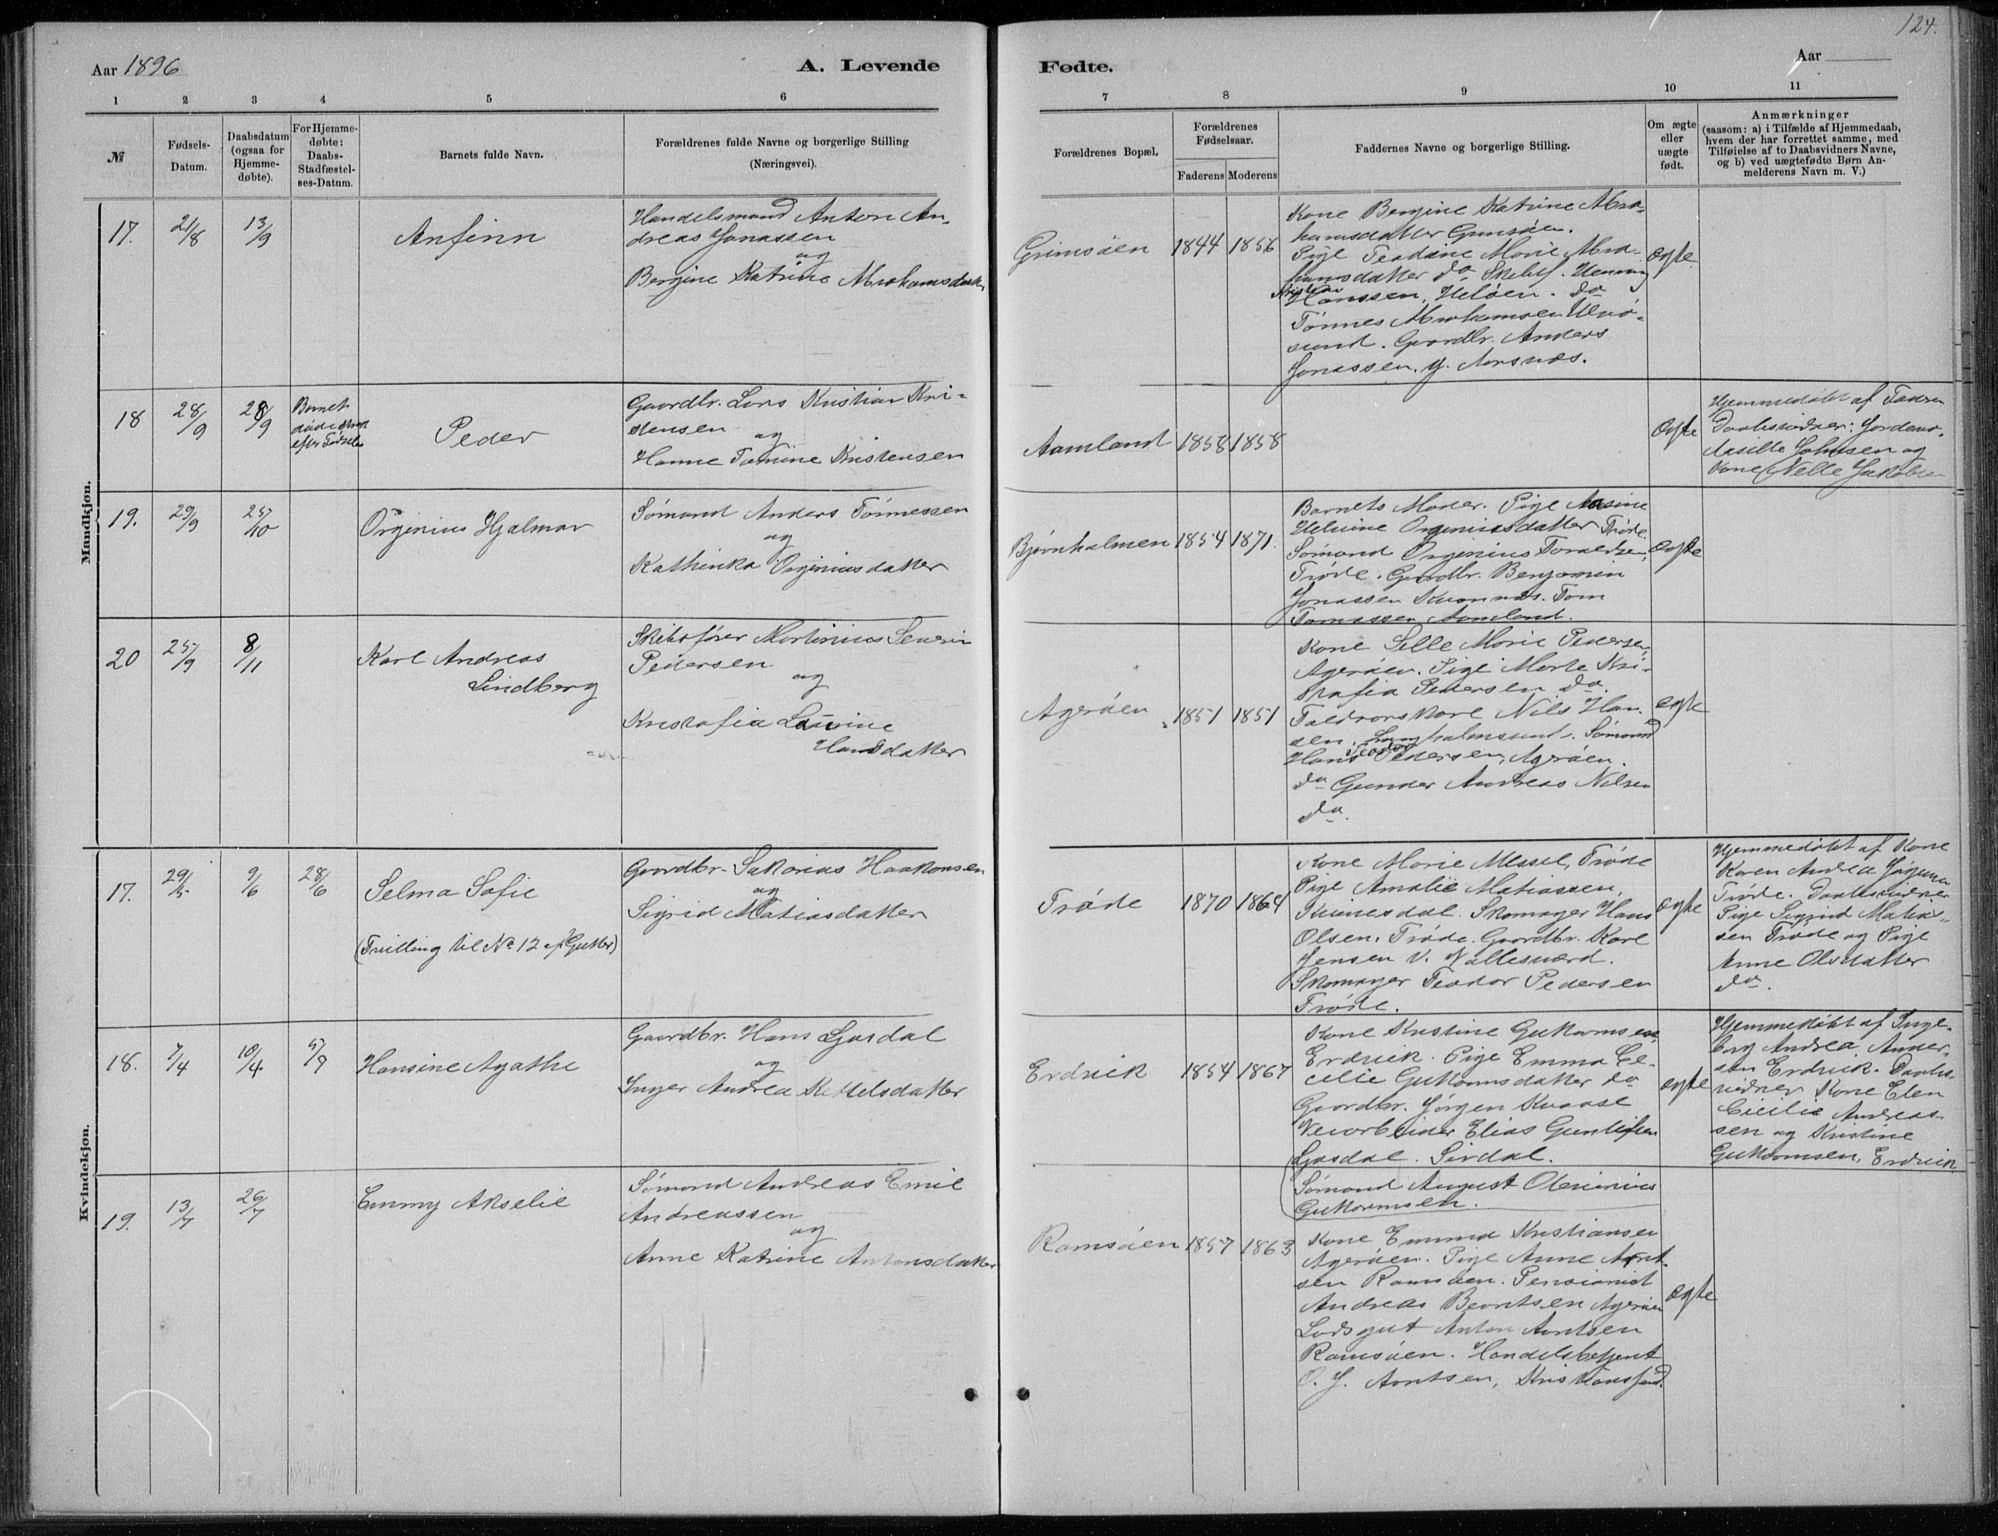 124.
Aar 1896
A. Levende
Fødte.
Aar
1 2 3 4 5 6
7 8 9 10 11
№
Fødsels-
Datum.
Daabsdatum
(ogsaa for
Hjemme-
døbte).
For Hjemme-
døbte:
Daabs-
Stadfæstel-
ses-Datum.
Barnets fulde Navn.
Forældrenes fulde Navne og borgerlige Stilling
(Næringsvei).
Forældrenes Bopæl.
Forældrenes
Fødselsaar.
Faderens Moderens
Faddernes Navne og borgerlige Stilling.
Om ægte
eller
uægte
født.
Anmærkninger
(saasom: a) i Tilfælde af Hjemmedaab,
hvem der har forrettet samme, med
Tilføielse af to Daabsvidners Navne,
og b) ved uægtefødte Børn An-
melderens Navn m. V.)
Mandkjøn.
17. 21/8 13/9
Anfinn
Handelsmand Anton An-
dreas Jonassen
og
Bergine Katrine Abrahamsdatter
Grimsøen 1844 1856
Kone Bergine Katrine Abra-
hamsdatter Grimsøen.
Pige Teodine Marie Abra-
hamsdatter do Skibsf. Henning
Kristian
Hanssen, Heløen. do
Tønnes Abrahamsen Ulvø-
sund. Gaardbr. Anders
Jonassen, y. Aarsnæs.
ægte.
18 28/9 28/9
Barnet
døde strax
efter Fødselen
Peder
Gaardbr. Lars Kristian Kri-
stensen
og
Hanne Tomine Kristensen
Aamland 1858 1858
ægte
Hjemmedøbt af Faderen
Daabsvidner: Jordemo.
Johnsen og
Kone Nelle Jakobsen
19. 29/9 25/10
Orginius Hjalmar
Sømand Anders Tønnessen
og
Kathinka Orginiusdatter
Bjørnholmen 1854 1871.
Barnets Moder. Pige Aasine
Helvine Orginiusdatter Trøde.
Sømand Orginius Toraldsen,
Trøde. Gaardbr. Benjamin
Jonassen Kvannæs. Tom
Tomassen Aamland.
ægte
20 25/9 8/11
Karl Andreas
Lindberg
Skibsfører Martinius Severin
Pedersen
og
Kristofia Lovine
Hansdatter
Agerøen 1851 1851
Kone Sille Marie Pedersen,
Agerøen. Pige Marte Kri-
stofia Pedersen do.
Toldrorskarl Nils Han-
sen. Langholmsund. Sømand
Teodor
Hans Pedersen, Agerøen.
do Gunder Andreas Nilsen
do.
ægte
Kvindekjøn.
17. 29/5 9/6 28/6
Selma Sofie
(Tvilling til No 12 af Gutter)
Gaardbr. Sakarias Haakonsen
og
Sigrid Matiasdatter
Trøde 1870 1864
Kone Marie Messel, Trøde
Pige Amalie Matiassen,
Kvinesdal. Skomager Hans
Olsen, Trøde. Gaardbr. Karl
Jensen V. Vallesværd.
Skomager Teodor Pedersen
Trøde.
ægte
Hjemmedøbt af Kone
Karen Andrea Jørgensen
Trøde. Daabsvidner
Pige Sigrid Matias-
sen Trøde og Pige
Anne Olsdatter
do.
18. 7/4 10/4 5/7
Hansine Agathe
Gaardbr. Hans Ljosdal
og
Inger Andrea Kittelsdatter
Erdvik 1854 1867
Kone Kristine Guttormsen,
Erdvik. Pige Emma Ce-
cilie Guttormsdatter do
Gaardbr. Jørgen Kvaase
Veiarbeider Elias Gunlifsen
Ljosdal. Sirdal.
Sømand August Olenius
Guttormsen.
ægte
Hjemmedøbt af Inge-
borg Andrea Ander-
sen Erdvik. Daabs-
vidner Kone Elen
Cicilie Andreas-
sen og Kristine
Guttormsen, Erdvik
19. 13/7 26/7
Emmy Akselie
Sømand Andreas Emil
Andreassen
og
Anne Katrine Antonsdatter
Ramsøen 1857 1863
Kone Emma Kristiansen
Agerøen. Pige Anne Arnt-
sen Ramsøen. Pensionist
Andreas Berntsen Agerøen
Lodsgut Anton Arntsen
Ramsøen. Handelsbetjent
O. J. Arntsen, Kristianssand.
ægte